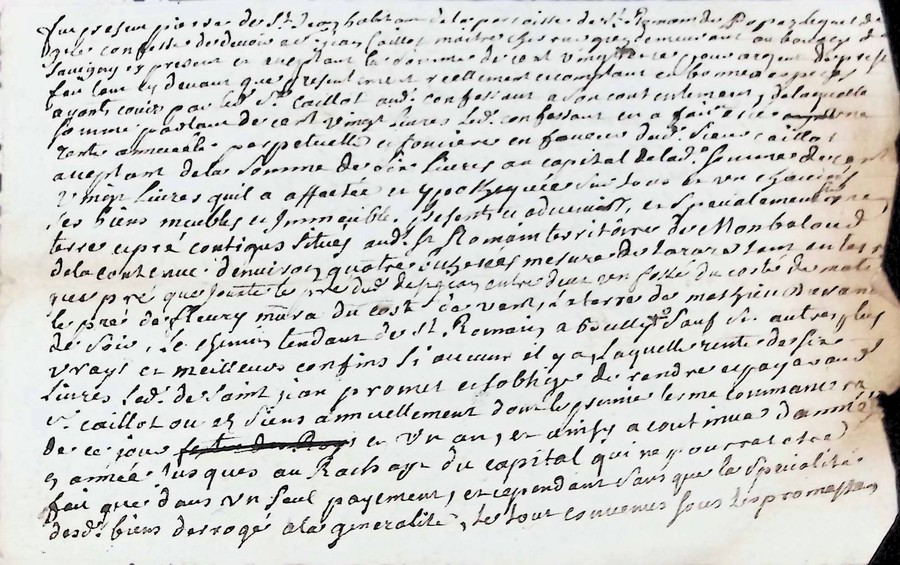 fut present pierre de St Jean habitant de la parroisse de St Romain de Popey lequel de
gré confesse devoir a Sr Jean Caillot maitre chirurgien demeurant au bourg de
Savigny cy present et acceptant la somme de cent vingt livres pour argent de prest
fait tout cy devant que presentement reellement et comptant en bonnes especes
ayant cours par led. Sr Caillot aud. confessant a son contentement, de laquelle
somme partant de cent vingt livres led. confessant en a fait
rente annuelle perpetuelle et fonciere en faveur dud. sieur Caillot
acceptant de la somme de six livres au capital de lad. somme de cent
vingt livres qu'il a affectée et ypothequée sur tous et un chacuns
ses biens meubles et immeubles presents et advenirs, et specialement une
terre et pré contigus situés aud. St Romain territoire de Monbaloud
de la contenue d'environ quatre mesure de tant en terre
que pré que jouxte le pré dud. entre deux un fossé du costé de matin
le pré de fleury mura du costé de vent, la terre de mathieu
de soir, le chemin tendant de St Romain a Sauf ses autres plus
vrays et meilleurs confins si aucun il y a, laquelle rente de six
livres led. de Saint jean promet et s'oblige de rendre et payer aud.
Sr. Caillot ou es siens annuellement dont le premier terme commancera
de ce jour en un an, et ainsy a continuer d'année
en année jusques au Rachapt du capital qui ne pourrat estre
fait que dans un seul payement, et cependant sans que la specialité
desd. biens derroge a la generalité, le tout convenus sous les promesses